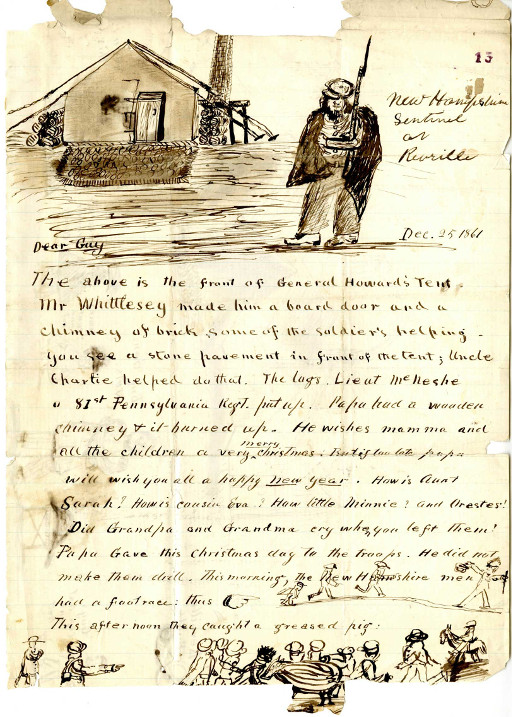 13
New Hampshire
Sentinel
at
Reveille
Dec. 25 1861
Dear Guy
The above is the front of General Howard's Tent.
Mr Whittlesey made him a board door and a
chimney of brick some of the soldier's helping -
You see a stone pavement in front of the tent; Uncle
Charlie helped do that. The logs. Lieut McNeshe
81st Pennsylvania Regt. put up. Papa had a wooden
chimney & it burned up. He wishes mamma and
all the children a very merry christmas. But if too late papa
will wish you all a happy new year. How is Aunt
Sarah? How is cousin Eva? How little Minnie? and Orestes?
Did Grandpa and Grandma cry when you left them?
Papa gave this christmas day to the troops. He did not
make them drill. This morning, the New Hampshire men
had a footrace: thus
This afternoon they caught a greased pig: